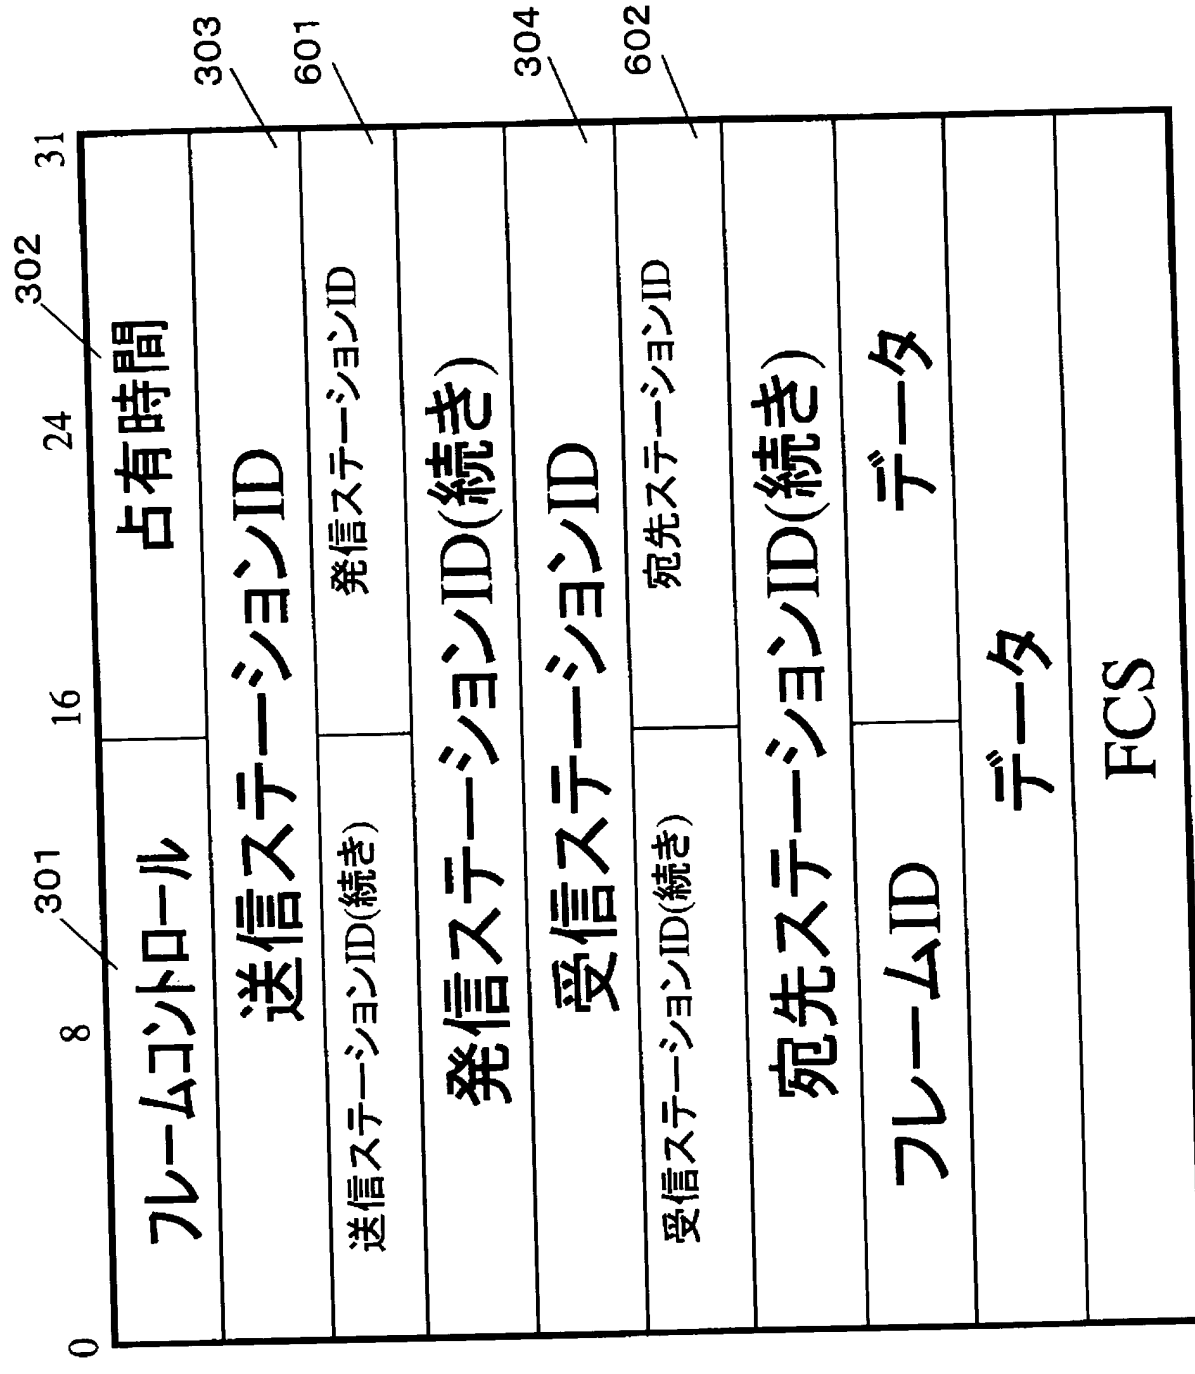 302 303 601 304 602
301
0 8 16 24 31
フレームコントロール 占有時間
送信ステーションID
送信ステーションID(続き) 発信ステーションID
発信ステーションID(続き)
受信ステーションID
受信ステーションID(続き) 宛先ステーションID
宛先ステーションID(続き)
フレームID データ
データ
FCS